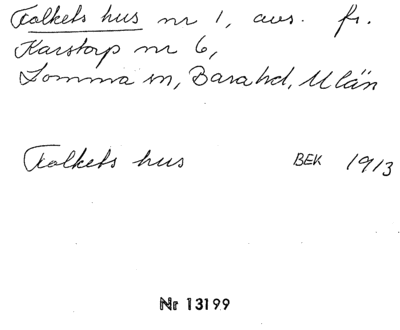 Folkets hus nr 1, avs. fr.
Karstorp nr 6,
Lomma sn, Bara hd, M län
Folkets hus BEK 1913
Nr 13199